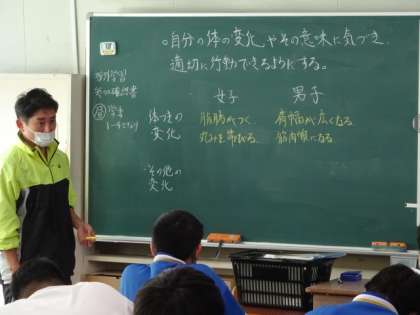 ○自分の体の変化やその意味に気づき、
適切に行動できるようにする。
女子 男子
体つきの
変化
脂肪がつく
丸みを帯びる
肩幅が広くなる
筋肉質になる
その他の
変化